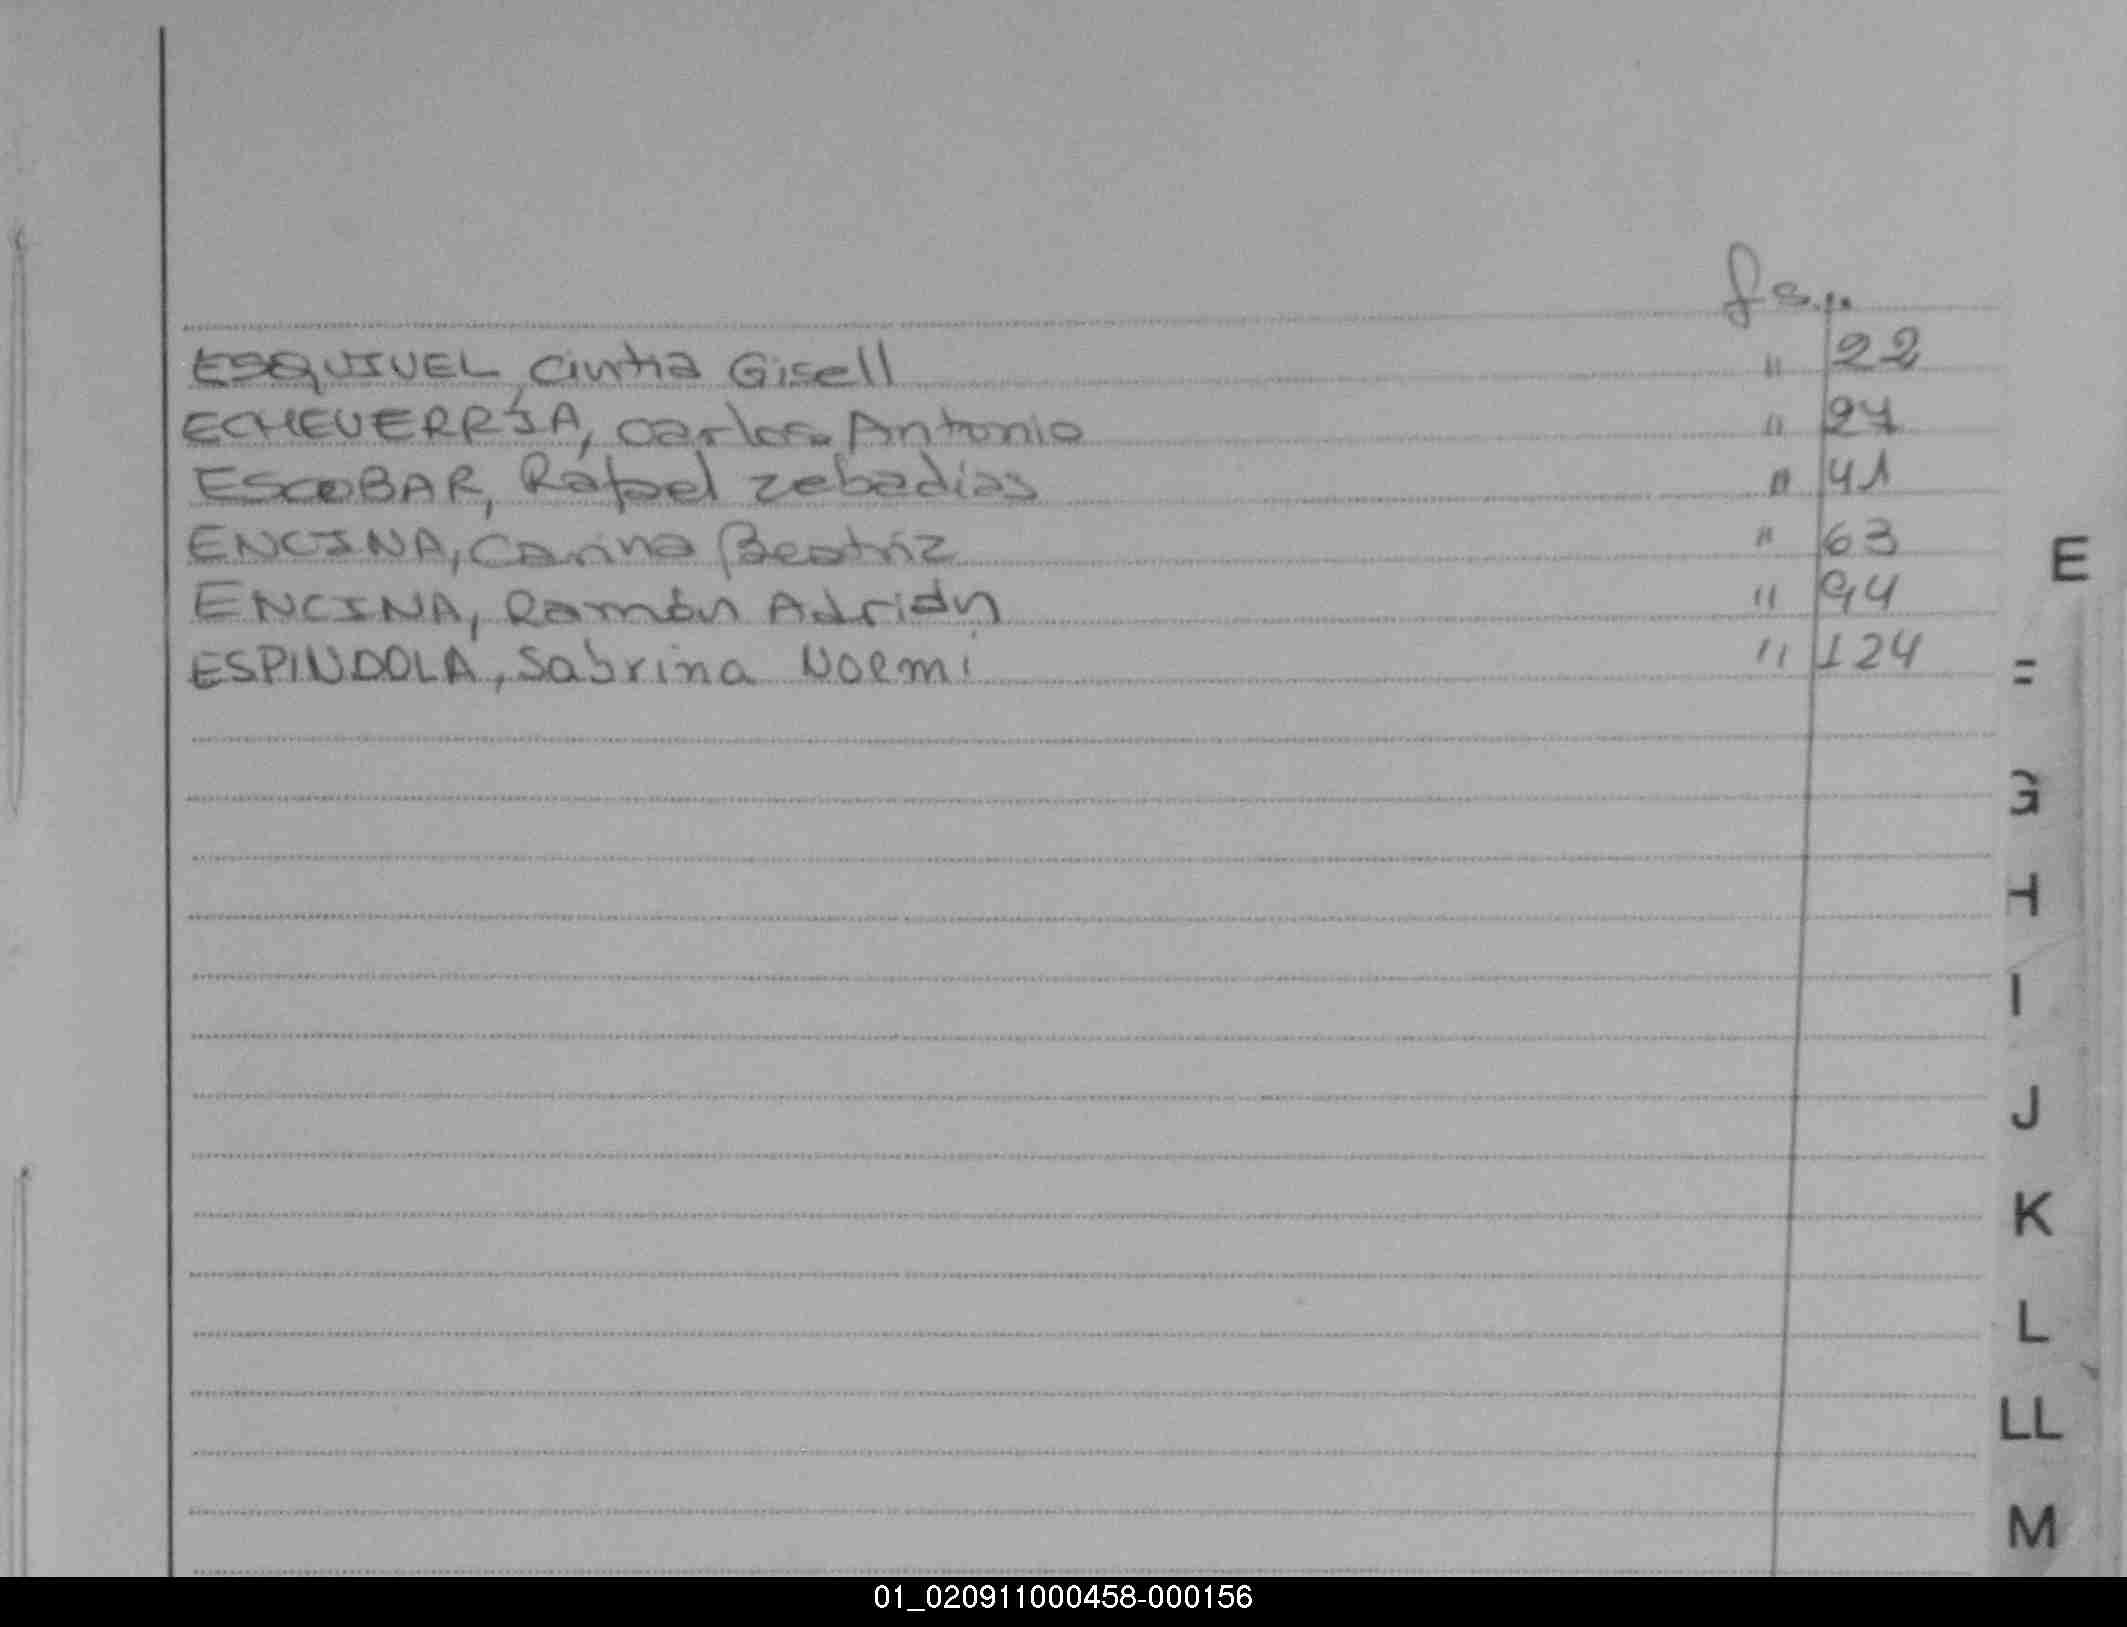 fs..
ESQUIVEL, Cintia Gisell " 22
ECHEVERRÍA, Carlos Antonio " 27
ESCOBAR, Rafael Zebadias " 41
ENCINA, Carina Beatriz " 63
ENCINA, Ramón Adrián " 94
ESPINDOLA, Sabrina Noemi " 124
E
G
H
I
J
K
L
LL
M
01_020911000458-000156